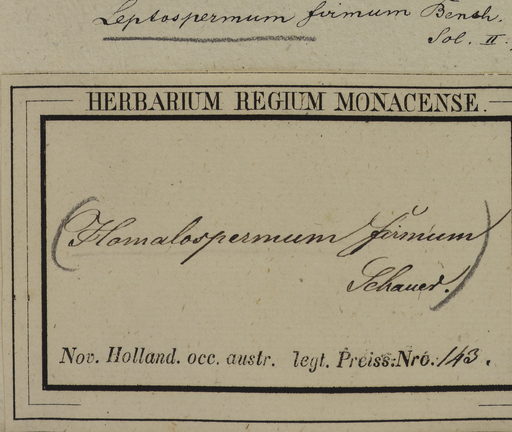 Leptospermum firmum Benth.
Sol. II.
HERBARIUM REGIUM MONACENSE.
(Homalospermum firmum
Schauer.)
Nov. Holland. occ. austr. legt. Preiss: Nro. 143.